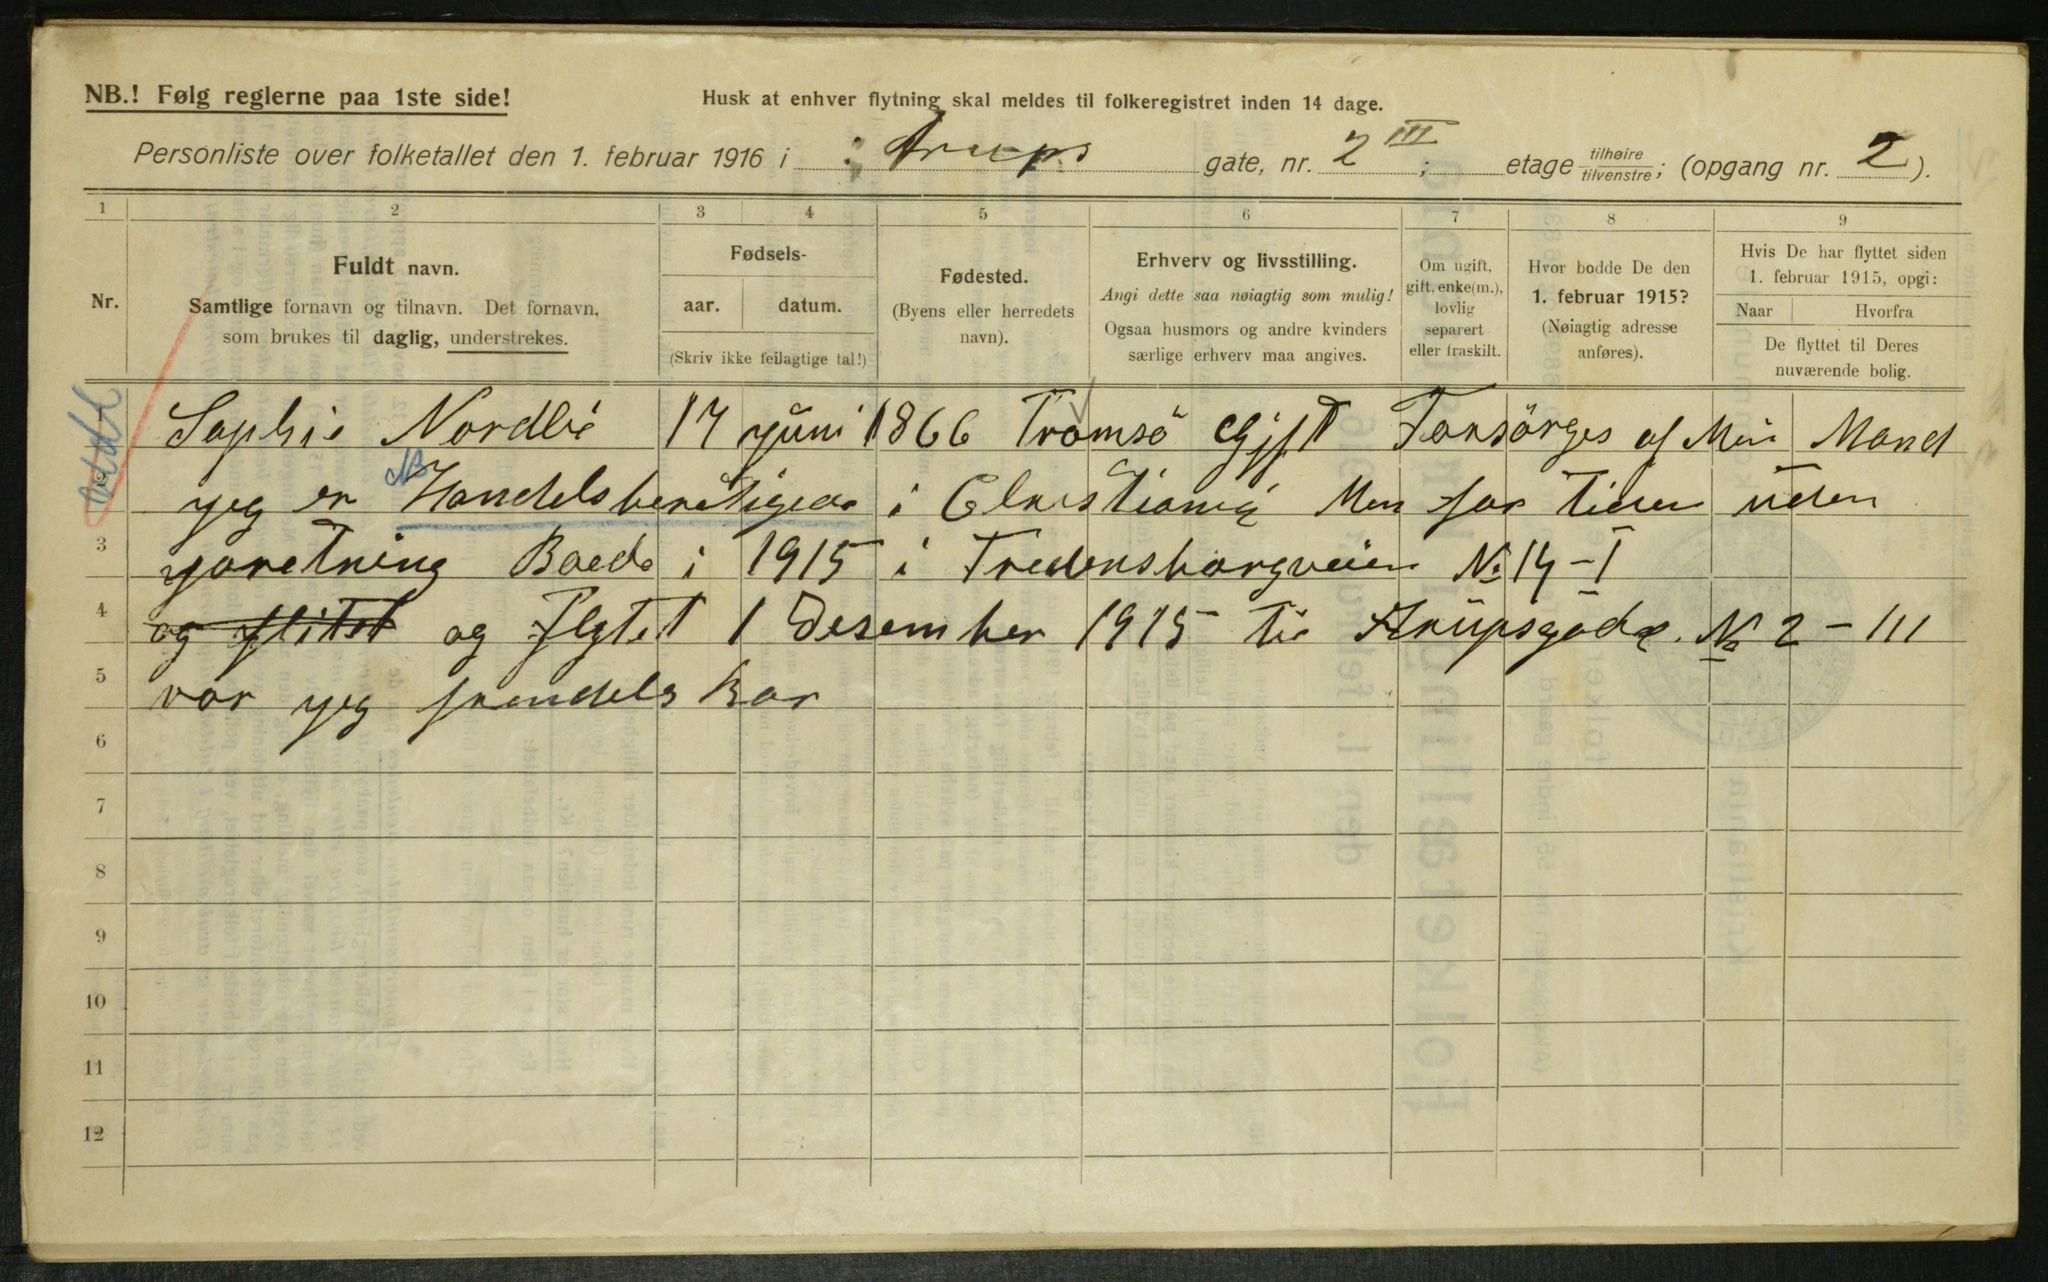 NB.! Følg reglerne paa 1ste side!
Husk at enhver flytning skal meldes til folkeregistret inden 14 dage.
Personliste over folketallet den 1. februar 1916 i Arups gate, nr. 2 III; etage tilhøire tilvenstre; (opgang nr. 2).
1 2 3 4 5 6 7 8 9
Nr.
Fuldt navn.
Samtlige fornavn og tilnavn. Det fornavn,
som brukes til daglig, understrekes.
Fødsels-
aar. datum.
(Skriv ikke feilagtige tal!)
Fødested.
(Byens eller herredets
navn).
Erhverv og livsstilling.
Angi dette saa nøiagtig som mulig!
Ogsaa husmors og andre kvinders
særlige erhverv maa angives.
Om ugift,
gift, enke(m.),
lovlig
separert
eller fraskilt.
Hvor bodde De den
1. februar 1915?
(Nøiagtig adresse
anføres).
Hvis De har flyttet siden
1. februar 1915, opgi:
Naar Hvorfra
De flyttet til Deres
nuværende bolig.
1 Sophie Nordlie 17 juni 1866 Tromsö Gift Forsörges af Min Mand
NB
yeg er Handelsberetigede i Christiania Men for tiden uden
3 yoretning Boede i 1915 i Fredensborgveien No 14-I
4 og flitet og Flytet 1 Desember 1915 til Arupsgade No 2-III
5 var yeg
6
7
8
9
10
11
12